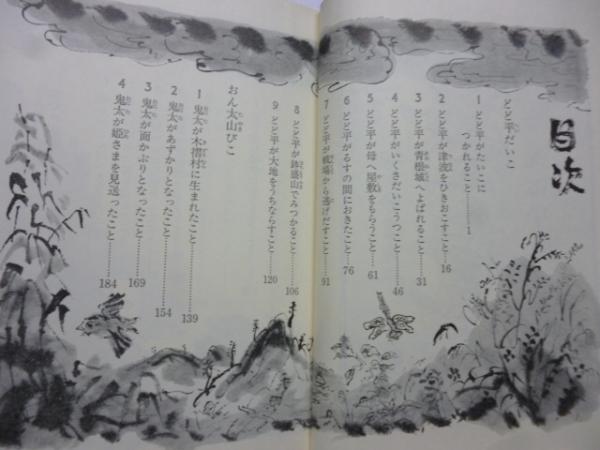 目次
とど平だいこ
1 とど平がたいこに
つかれること……1
2 とど平が津波をひきおこすこと……16
3 とど平が青根城へよばれること……31
4 とど平がいくさだいこうつこと……46
5 とど平が母へ屋敷をもらうこと……61
6 とど平がるすの間におきたこと……76
7 とど平が戦場から逃げだすこと……91
8 とど平が鉢盛山でみつかること……106
9 とど平が大地をうちならすこと……120
おん太山びこ
1 鬼太が木樵に生まれたこと……139
2 鬼太があずかりとなったこと……154
3 鬼太が面かぶりとなったこと……169
4 鬼太が姫さまを見送ったこと……184